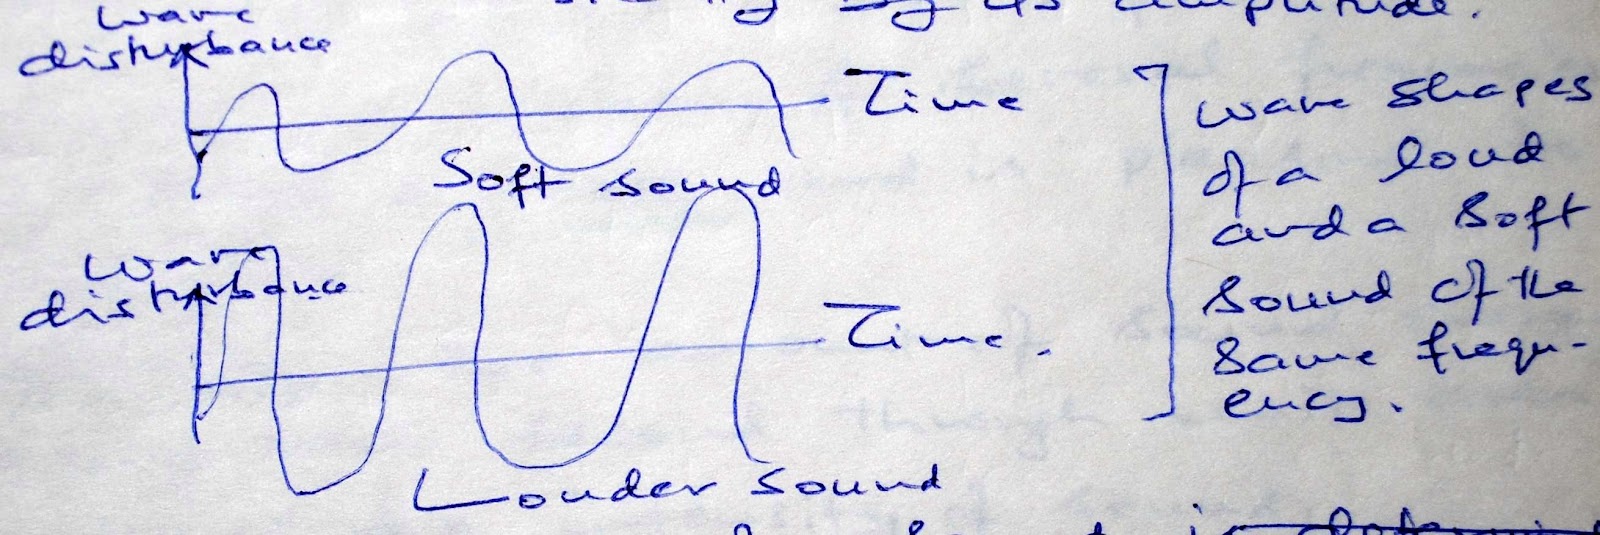 by its amplitude.
wave
disturbance
Time
Soft sound
wave
disturbance
Time.
Louder sound
wave shapes
of a loud
and a soft
sound of the
same frequ-
ency.
is